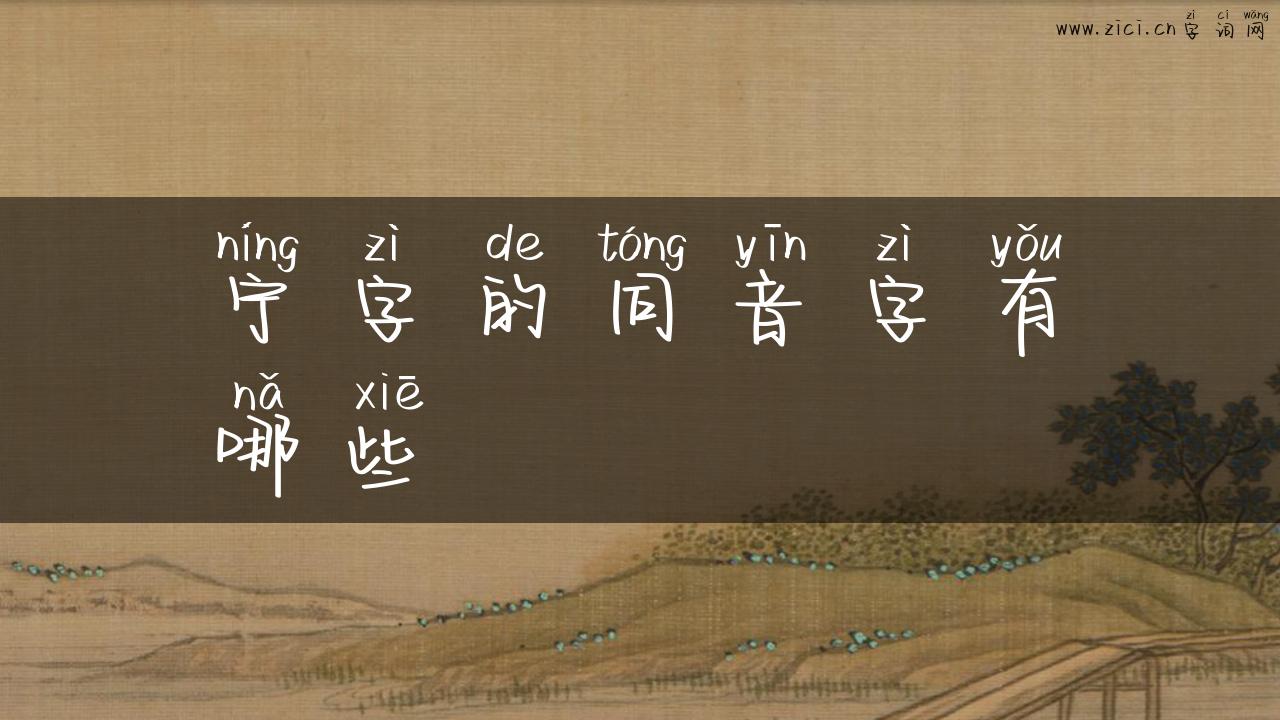 zì cí wǎng
www.zici.cn 字词网
níng zì de tóng yīn zì yǒu
宁字的同音字有
nǎ xiē
哪些